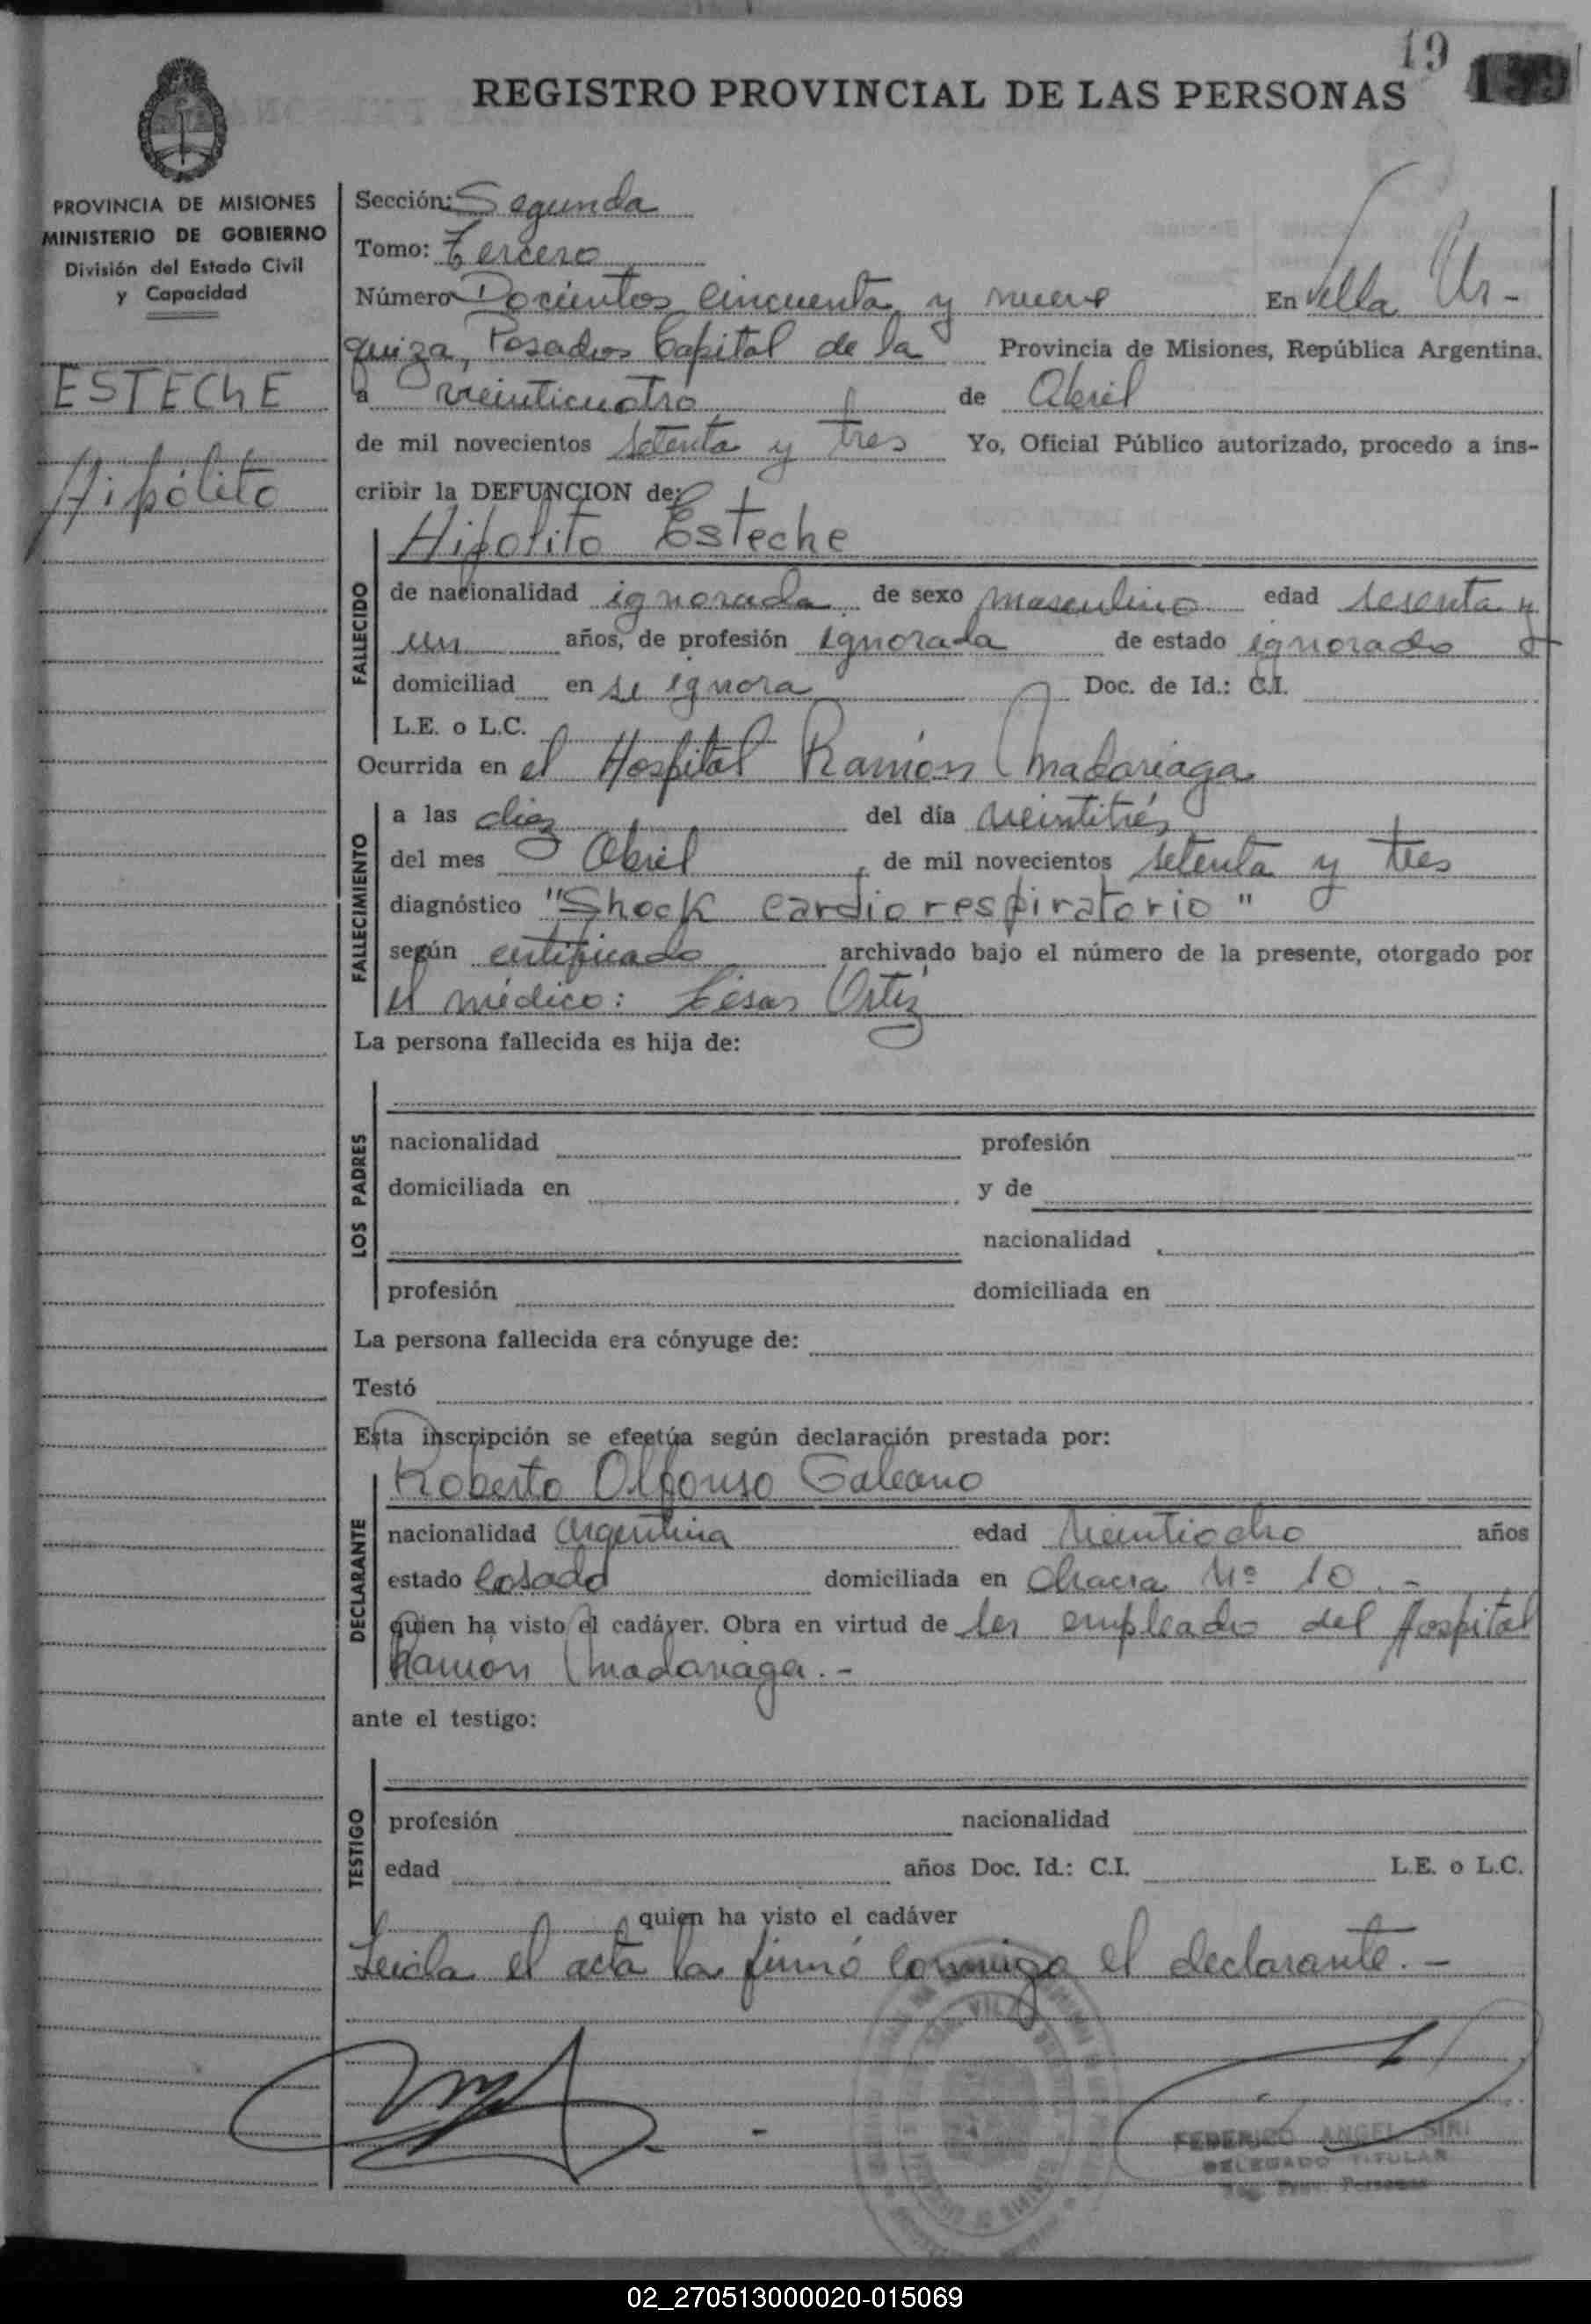 19
REGISTRO PROVINCIAL DE LAS PERSONAS
PROVINCIA DE MISIONES
MINISTERIO DE GOBIERNO
División del Estado Civil
y Capacidad
ESTEChE
Hipólito
Sección: Segunda
Tomo: Tercero
Número Docientos cincuenta y nueve En Villa Ur-
quiza, Posadas Capital de la Provincia de Misiones, República Argentina,
a veinticuatro de Abril
de mil novecientos setenta y tres Yo, Oficial Público autorizado, procedo a ins-
cribir la DEFUNCION de:
Hipólito Esteche
FALLECIDO
de nacionalidad ignorada de sexo masculino edad sesenta y
un años, de profesión ignorada de estado ignorado
domiciliad en se ignora Doc. de Id.: C.I.
L.E. o L.C.
Ocurrida en el Hospital Ramón Madariaga
FALLECIMIENTO
a las diez del día veintitrés
del mes Abril de mil novecientos setenta y tres
diagnóstico "Shock cardiorespiratorio"
según certificado archivado bajo el número de la presente, otorgado por
el médico: César Ortiz
La persona fallecida es hija de:
LOS PADRES
nacionalidad profesión
domiciliada en y de
nacionalidad
profesión domiciliada en
La persona fallecida era cónyuge de:
Testó
Esta inscripción se efectúa según declaración prestada por:
Roberto Alfonso Galeano
DECLARANTE
nacionalidad Argentina edad veintiocho años
estado Casado domiciliada en Chacra Nº 10.-
quien ha visto el cadáver. Obra en virtud de ser empleado del Hospital
Ramón Madariaga.-
ante el testigo:
TESTIGO
profesión nacionalidad
edad años Doc. Id.: C.I. L.E. o L.C.
quien ha visto el cadáver
Leida el acta la firmó conmigo el declarante.-
FEDERICO ANGEL SIRI
DELEGADO TITULAR
02_270513000020-015069